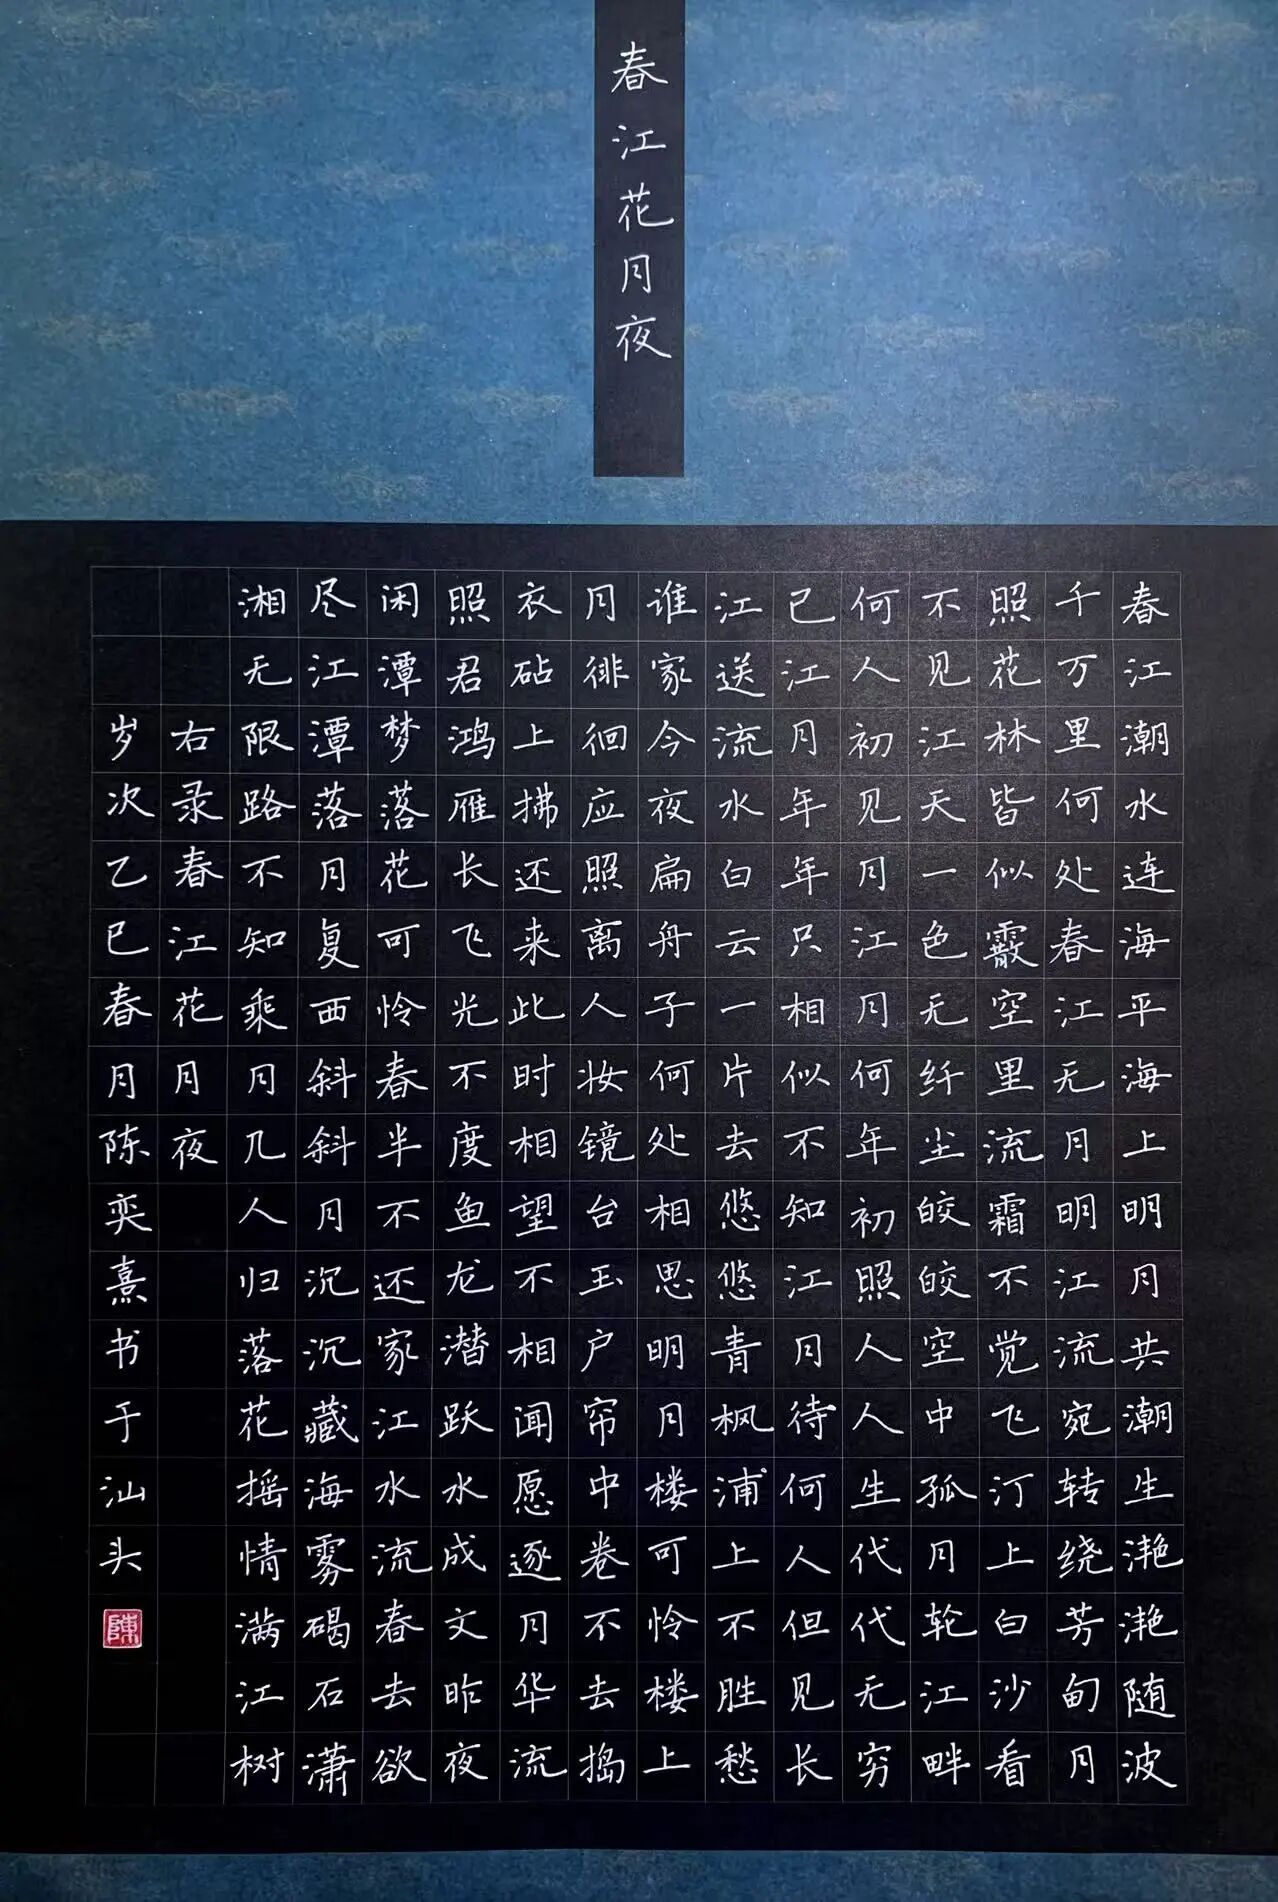 春江花月夜
春江潮水连海平海上明月共潮生滟滟随波
千万里何处春江无月明江流宛转绕芳甸月
照花林皆似霰空里流霜不觉飞汀上白沙看
不见江天一色无纤尘皎皎空中孤月轮江畔
何人初见月江月何年初照人人生代代无穷
已江月年年只相似不知江月待何人但见长
江送流水白云一片去悠悠青枫浦上不胜愁
谁家今夜扁舟子何处相思明月楼可怜楼上
月徘徊应照离人妆镜台玉户帘中卷不去捣
衣砧上拂还来此时相望不相闻愿逐月华流
照君鸿雁长飞光不度鱼龙潜跃水成文昨夜
闲潭梦落花可怜春半不还家江水流春去欲
尽江潭落月复西斜斜月沉沉藏海雾碣石潇
湘无限路不知乘月几人归落花摇情满江树
右录春江花月夜
岁次乙巳春月陈奕熹书于汕头
陳